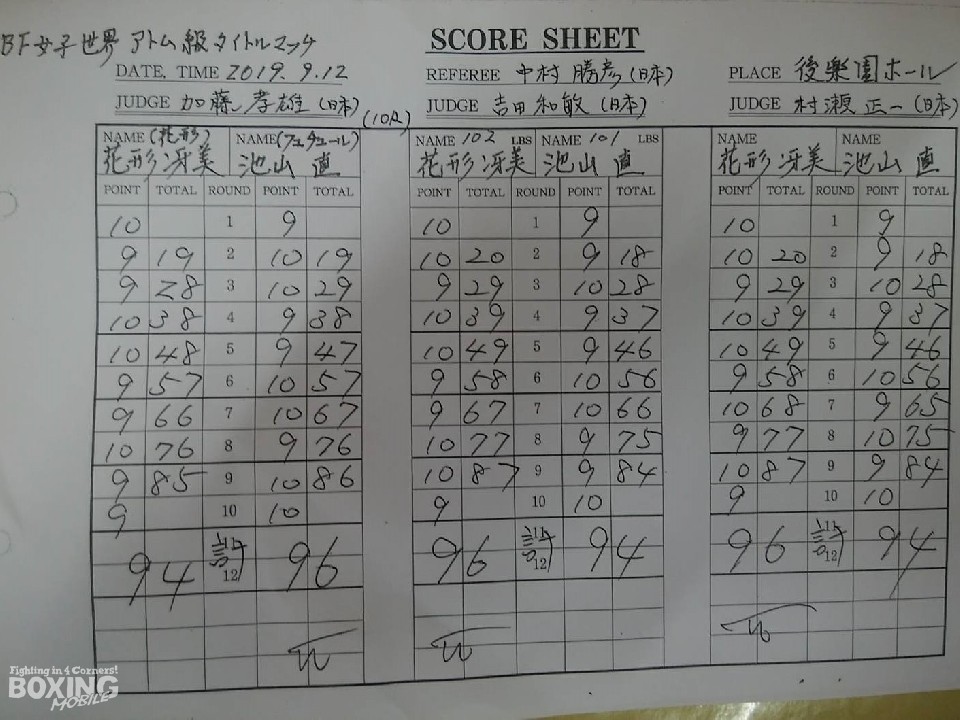 BF女子世界アトム級タイトルマッチ
SCORE SHEET
DATE, TIME 2019. 9.12
REFEREE 中村勝彦(日本)
PLACE 後楽園ホール
JUDGE 加藤孝雄(日本)
(10R)
JUDGE 吉田和敏(日本)
JUDGE 村瀬正一(日本)
NAME (花形) NAME (フュチュール)
NAME 102 LBS NAME 101 LBS
NAME NAME
花形冴美 池山直
花形冴美 池山直
花形冴美 池山直
POINT TOTAL ROUND POINT TOTAL
POINT TOTAL ROUND POINT TOTAL
POINT TOTAL ROUND POINT TOTAL
10 1 9
10 1 9
10 1 9
9 19 2 10 19
10 20 2 9 18
10 20 2 9 18
9 28 3 10 29
9 29 3 10 28
9 29 3 10 28
10 38 4 9 38
10 39 4 9 37
10 39 4 9 37
10 48 5 9 47
10 49 5 9 46
10 49 5 9 46
9 57 6 10 57
9 58 6 10 56
9 58 6 10 56
9 66 7 10 67
9 67 7 10 66
10 68 7 9 65
10 76 8 9 76
10 77 8 9 75
9 77 8 10 75
9 85 9 10 86
10 87 9 9 84
10 87 9 9 84
9 10 10
9 10 10
9 10 10
94 計 96
96 計 94
96 計 94
12
12
12
W
W
W
Fighting in 4 Corners!
BOXING
MOBILE